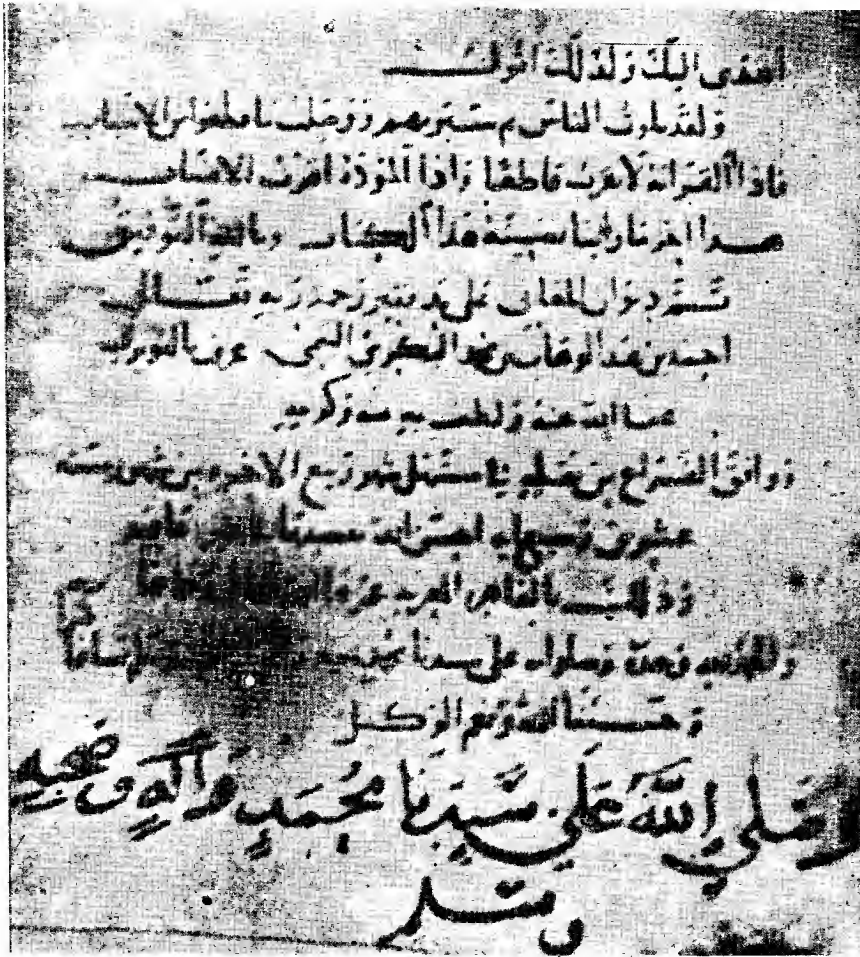 ولقد بلوت الناس ثم سبرتهم ووصلت ما قطعوا من الاسباب
فاذا القرابة لا تقرب قاطعا واذا المودة اقرب الانساب
هذا اخر ما رأينا هذا الكتاب وبالله التوفيق
تم ديوان المعانى على يد فقير رحمة ربه تعالى
احمد بن عبد الوهاب بن محمد البكرى التيمى عرف بالنويرى
عفا الله عنه ولطف به بمنه وكرمه
ووافق الفراغ من تعليقه فى مستهل شهر ربيع الاخر من شهور سنة
عشرين وسبعمايه
وذلك بالقاهره المعزيه
والحمد لله وحده وصلواته على سيدنا محمد
وحسبنا الله ونعم الوكيل
وصلي الله علي سيدنا محمد وآله وصحبه
وسلم